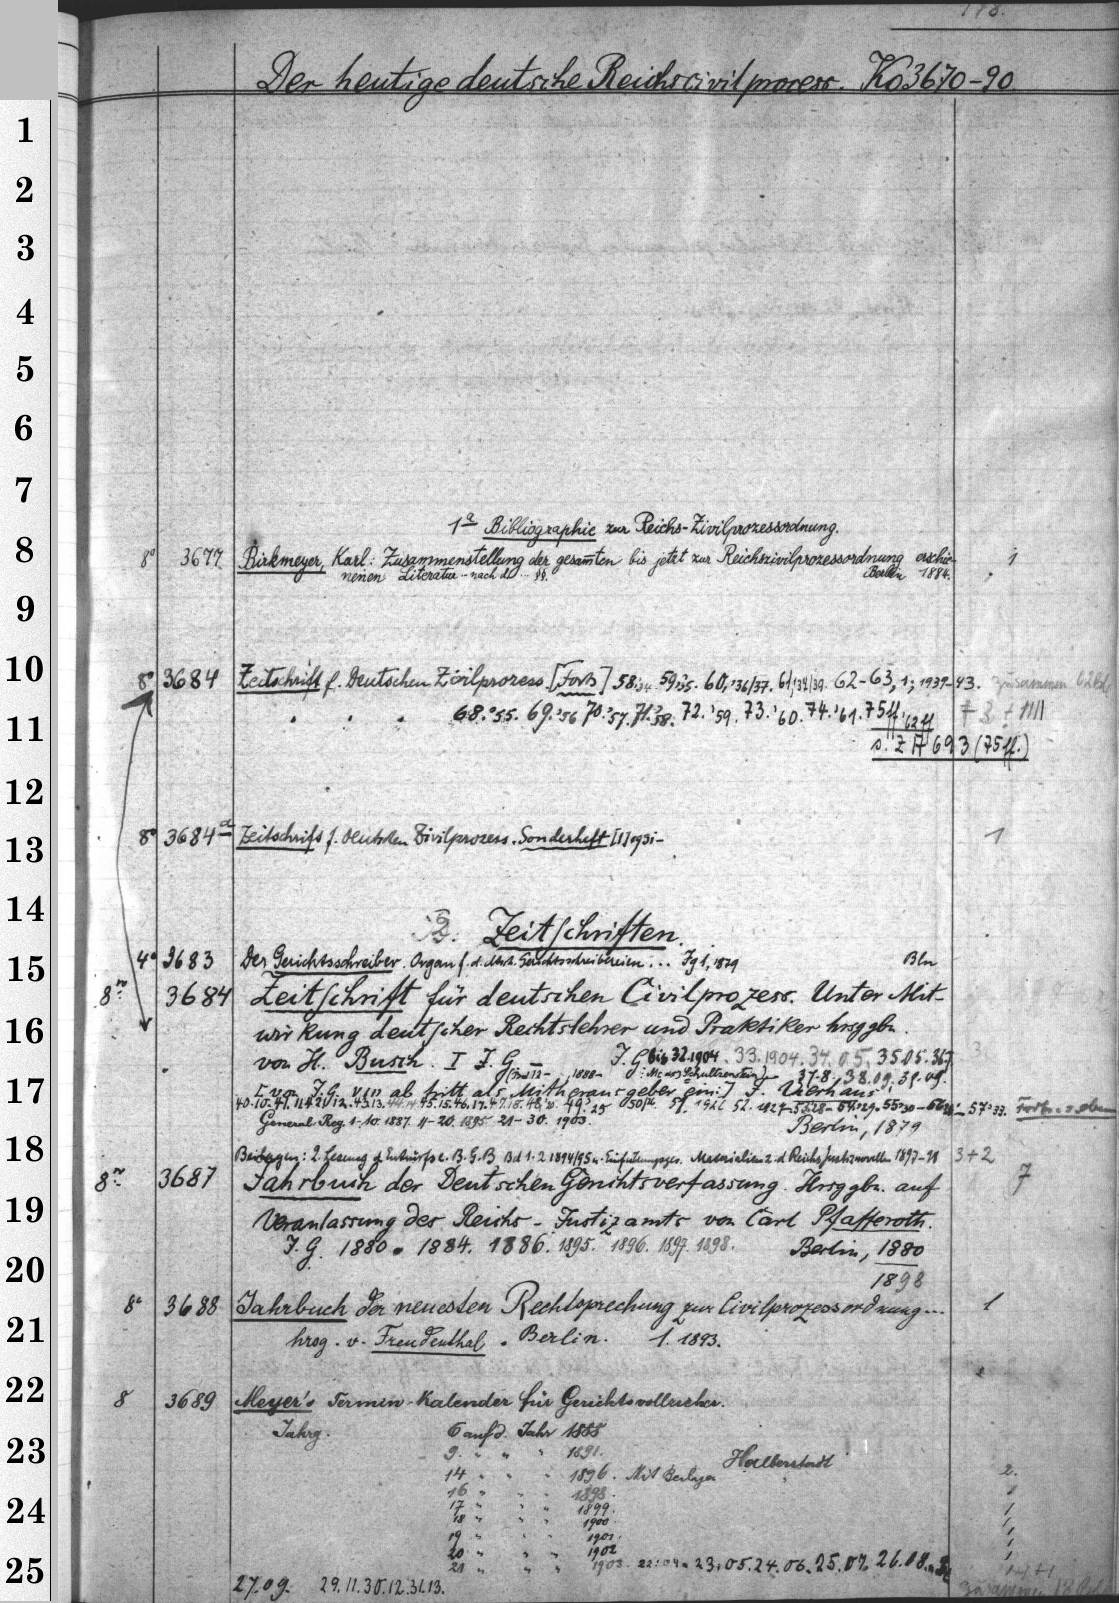 178.
Der heutige deutsche Reichscivilprocess. Ko3670-90
1
2
3
4
5
6
7
1a Bibliographie zur Reichs-Zivilprozessordnung.
8 8° 3677 Birkmeyer, Karl: Zusammenstellung der gesamten bis jetzt zur Reichscivilprozessordnung erschie- 1
nenen Literatur nach d. ... §§. Berlin 1884.
9
10 8° 3684 Zeitschrift f. Deutschen Zivilprozess [Forts] 58,34. 59,35. 60,'36/37. 61, 62-63,1; 1939-43. zusammen 62 Bd.
11 68.'55. 69.'56 70.'57. 71.'58. 72.'59. 73.'60. 74.'61. 75ff '62ff
s. Z A 693 (75ff.)
12
13 8° 3684a Zeitschrift f. deutschen Zivilprozess. Sonderheft [1] 1931- 1
14 2. Zeitschriften.
15 4° 3683 Der Gerichtsschreiber. Organ f. d. dtsch. Gerichtsschreibereien ... Jg 1, 1879 Bln
8vo 3684 Zeitschrift für deutschen Civilprozess. Unter Mit-
16 wirkung deutscher Rechtslehrer und Praktiker hrsggbn.
von H. Busch. I J. G. J. G. bis 32.1904. 33.1904. 34.05. 35.05. 36.7
37.8, 38.09. 39.09.
17 [von J. G. VIII ab tritt als Mitherausgeber ein:] F. Vierhaus
General-Reg. 1-10. 1887. 11-20. 1895 21-30. 1903. Berlin, 1879
18 Beilagen: 2. Lesung d. Entwurfs e. B. G. B Bd 1-2 1894/95 u. Einführungsges. Materialien z. d. Reichsjustiznovellen 1897-98 3+2
8vo 3687 Jahrbuch der Deutschen Gerichtsverfassung. Hrsggbn. auf 7
19 Veranlassung des Reichs-Justizamts von Carl Pfafferoth.
J. G. 1880. 1884. 1886. 1895. 1896. 1897. 1898. Berlin, 1880
20 1898
8° 3688 Jahrbuch der neuesten Rechtsprechung zur Civilprozessordnung... 1
21 hrsg. v. Freudenthal. Berlin. 1. 1893.
22 8 3689 Meyer's Termin-Kalender für Gerichtsvollzieher.
Jahrg. 6 auf d. Jahr 1888
23 9. " " " 1891.
Halberstadt
14 " " " 1896. Mit Beilagen 2.
16 " " " 1898. 1
24 17 " " " 1899. 1
18 " " " 1900. 1
19 " " " 1901. 1
20 " " " 1902 1
25 21 " " " 1903. 22:04. 23:05. 24.06. 25.07. 26.08.
27.09. 29.11. 30.12. 31.13. zusammen 18 Bd.